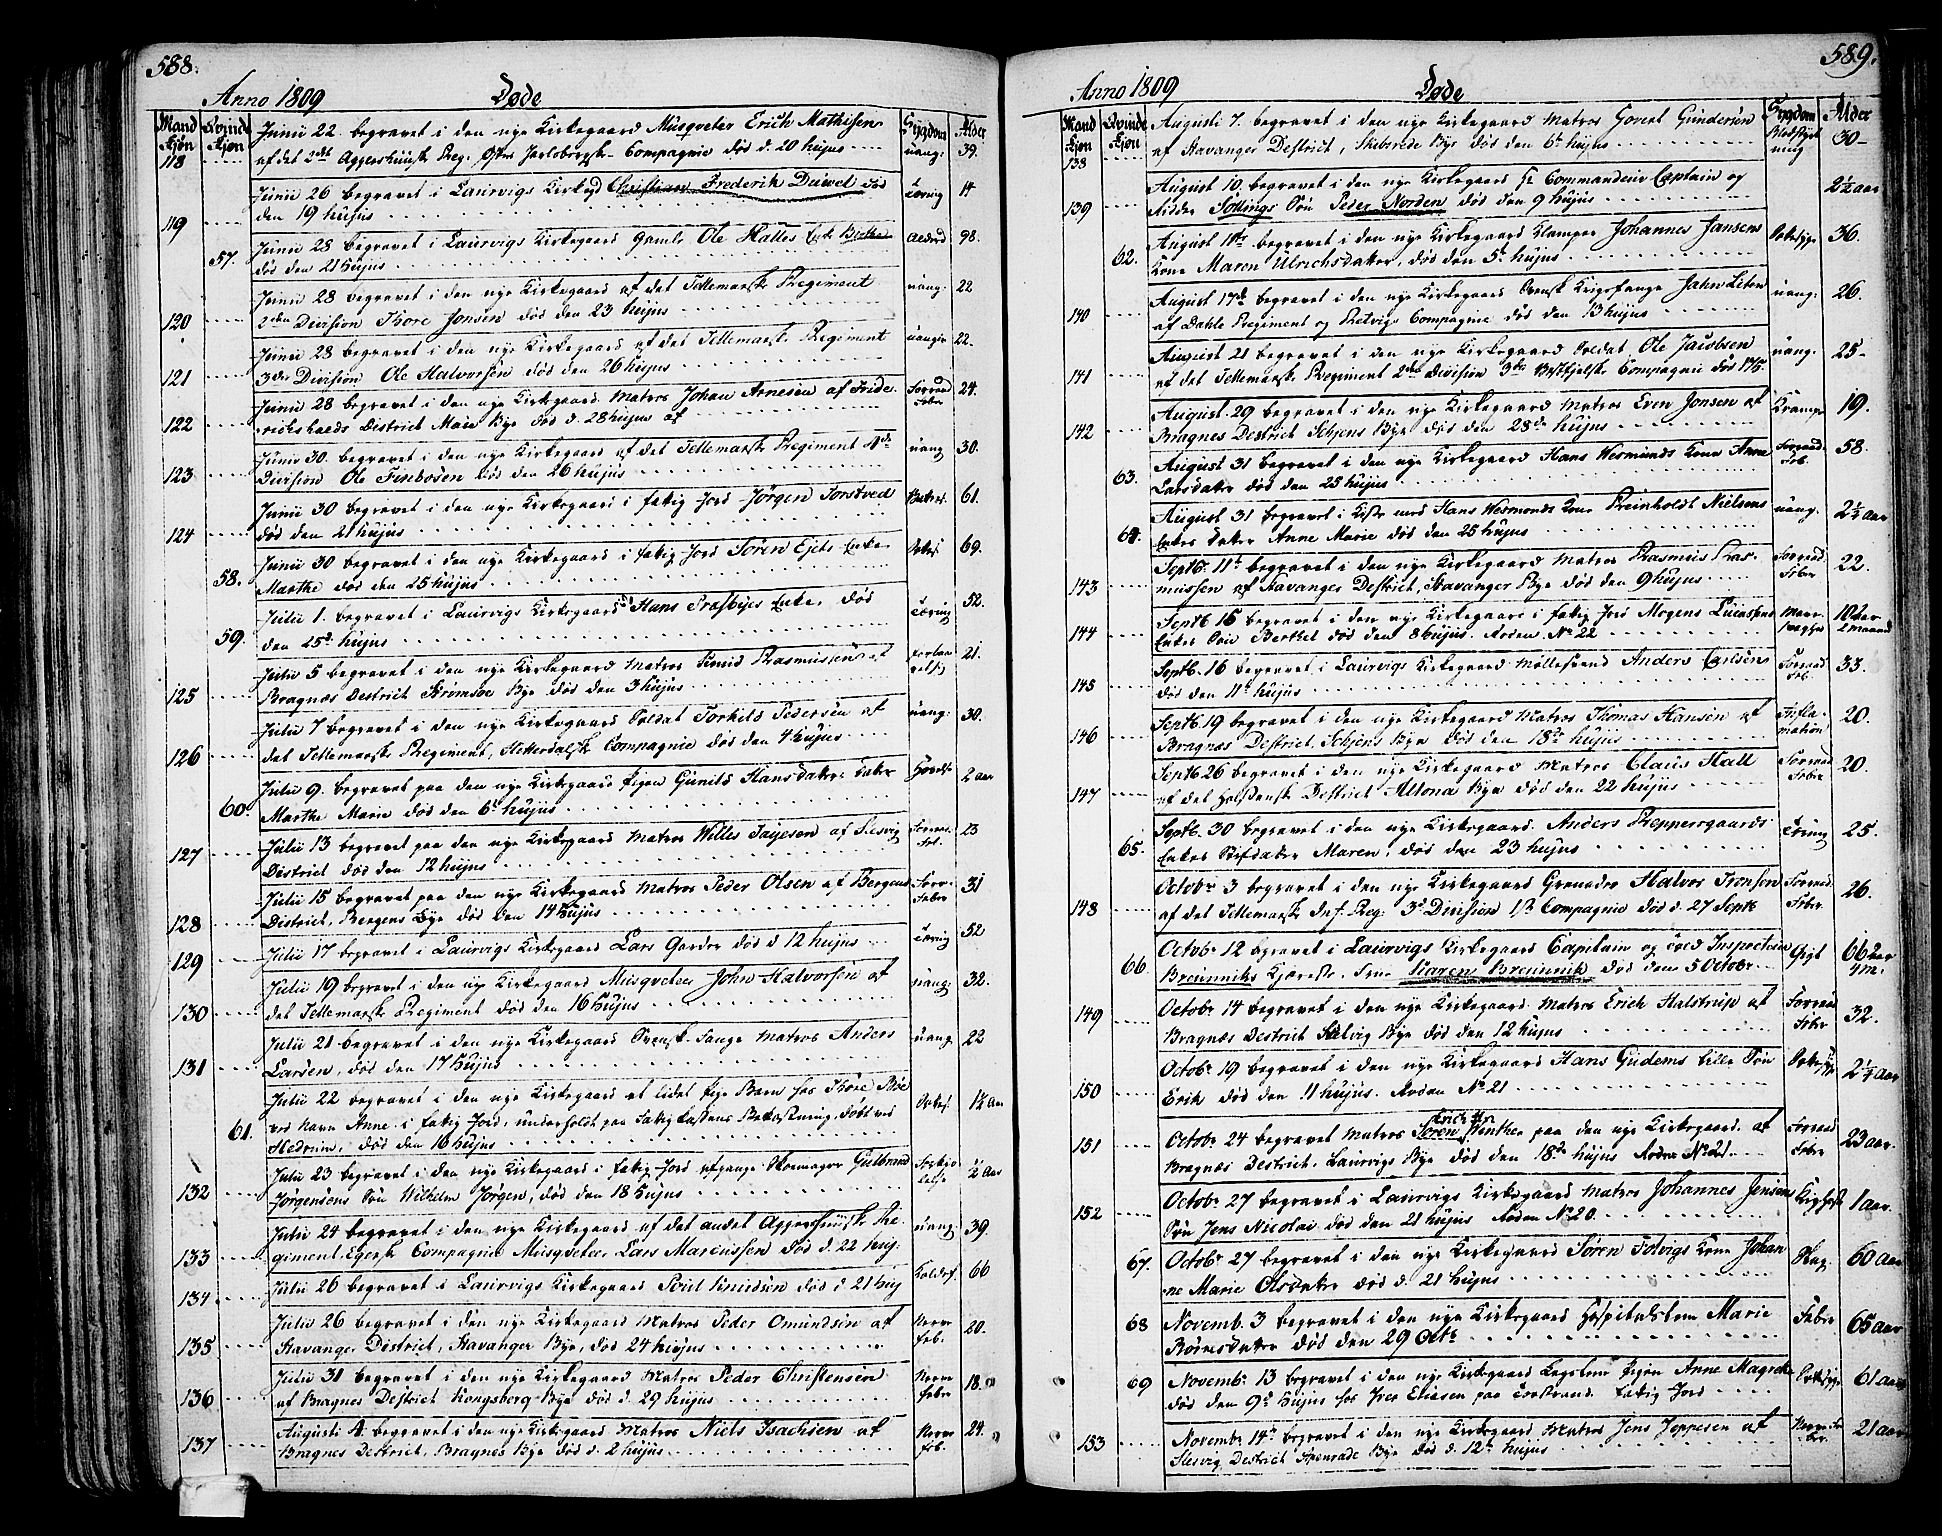 588.
Anno 1809 Døde
Mand kjøn Qvinde kjøn Sygdom Alder
118 Junii 22 begravet i den nye Kirkegaard Musqveter Erich Mathisen
af det 2det Aggershuusk Reg. Øster Jarlsbergsk Compagnie død d. 20 hujus uang: 39.
119 Junii 26 begravet i Laurvigs Kirkegd Christian Frederik Duwel død
den 19 hujus Tæring 14
57. Junii 28 begravet i Laurvigs Kirkegaard gamle Ole Halles Enke Berthe
død den 21 hujus Alderd 98.
120 Junii 28 begravet i den nye Kirkegaard af det Tellemarsk Regiment
2den Division Thore Jonsen død den 23 hujus uang: 22
121 Junii 28 begravet i den nye Kirkegaard af det Tellemarsk Regiment
3die Division Ole Halvorsen død den 26 hujus uang: 22.
122 Junii 28 begravet i den nye Kirkegaard Matros Johan Arnesen af Fride-
richshalds District Bye død d. 28 hujus Forraad Feber 24.
123 Junii 30. begravet i den nye Kirkegaard af det Tellemarsk Regiment
Division Ole Finbosen død den 26 hujus uang 30.
124 Junii 30 begravet i den nye Kirkegaard i fattig Jord Jørgen Torstved
død den 21 hujus 61.
58. Junii 30 begravet i den nye Kirkegaard i fattig Jord Søren Ejets Enke
Marthe død den 25 hujus 69.
59. Julii 1. begravet i Laurvigs Kirkegaard Hans Trasbyes Enke, død
den 25de hujus Tæring 52.
125 Julii 5 begravet i den nye Kirkegaard Matros Simid Rasmussen af
Bragnæs Destrict Bye død den 3 hujus 21.
126 Julii 7 begravet i den nye Kirkegaard Soldat Torkild Pedersen af
det Tellemarsk Regiment, Hetterdalsk Compagnie død den 4 hujus uang: 30.
60. Julii 9. begravet paa den nye Kirkegaard Pigen Gunild Hansdatter
Marthe Marie død den 6te hujus 2 aar
127 Julii 13 begravet paa den nye Kirkegaard Matros Willes Tayesen af Slesvig
District død den 12 hujus 23
128 Julii 15 begravet paa den nye Kirkegaard Matros Peder Olsen af Bergens
District, Bergens Bye død den 14 hujus Forr. Feber 31
129 Julii 17 begravet i Laurvigs Kirkegaard Lars Garder død d 12 hujus Tæring 52
130 Julii 19 begravet i den nye Kirkegaard Musqveter John Halvorsen af
det Tellemarsk Regiment død den 16 hujus uang: 32.
131 Julii 21 begravet i den nye Kirkegaard Svensk Fange Matros Anders
Larsen, død den 17 hujus uang. 22
61. Julii 22 begravet i den nye Kirkegaard et lidet pige Barn hos Thore Bøe
ved navn Anne i fattig Jord, underholdt paa Fattig Cassens Bekostning, døbt ved
Hedrum, død den 16 hujus 1½ aar
132 Julii 23 begravet i den nye Kirkegaard i fattig Jord afgangne Skomager Gulbrand
Jørgensens Søn Wilhelm Jørgen, død den 18 hujus ½ Aar
133 Julii 24 begravet i den nye Kirkegaard af det andet Aggershuusk Re-
giment, Egersk Compagnie Musqveter Lars Marcussen død d. 22 huj. uang: 39.
134 Julii 26 begravet i Laurvigs Kirkegaard Poul Knudsen død d 21 huj Koldf. 66
135 Julii 26 begravet i den nye Kirkegaard Matros Peder Omundsen af
Stavanger District, Stavanger Bye, død 24 hujus Nerve feb. 20.
136 Julii 31 begravet i den nye Kirkegaard Matros Peder Christensen
af Bragnes Destrict Kongsberg Bye død d. 29 hujus Nerve feber 18.
137 Augusti 4. begravet i den nye Kirkegaard Matros Niels Isachsen af
Bragnes Destrict, Bragnes Bye død d. 2 hujus Nerve feb. 24.
589.
Anno 1809 Døde
Mand kjøn Qvinde kjøn Sygdom Alder
138 Augusti 7. begravet i den nye Kirkegaard Matros Goret Gundersen
af Stavanger Destrict, Bye død den 6te hujus 30
139 August 10. begravet i den nye Kirkegaard Hr Commandeur Captain og
Ridder Søllings Søn Peder Norden død den 9 hujus 2½ aar
62. August 11te begravet i den nye Kirkegaard Klamper Johannes Jansens
Kone Maren Ulrichsdatter, død den 5te hujus 36.
140 August 17de begravet i den nye Kirkegaard Svensk Krigsfange Jahn Liten
af Dahls Regiment og Retvigs Compagnie død den 13 hujus uang: 26.
141 August 21 begravet i den nye Kirkegaard Soldat Ole Jacobsen
af det Tellemarsk Regiment 2den Division 3die Compagnie død 17 uang. 25
142 August 29 begravet i den nye Kirkegaard Matros Even Jonsen af
Bragnes Destrict Schjens Bye død den 28de hujus Krampe 19.
63. August 31 begravet i den nye Kirkegaard Hans Wesmunds Kone Anne
Larsdatter død den 25 hujus Forraad. Feb. 58.
64. August 31 begravet i Kiste med Hans Wesmunds Kone Reinholdt Nielsens
Enkes datter Anne Marie død den 25 hujus uang. 2½ aar
143 Septbr. 11te begravet i den nye Kirkegaard Matros Rasmus Ras-
mussen af Stavanger Destrict, Stavanger Bye død den 9 hujus Forraad. Feber 22.
144 Septb 15 begravet i den nye Kirkegaard i fattig Jord Mogens
Enkes Søn Berthel død den 8 hujus. Roden No 22 10 aar 2 maaned
145 Septb. 16 begravet i Laurvigs Kirkegaard Møllesvend Anders Carlsen
død den 11te hujus Forraad. Feb. 33.
146 Septb. 19 begravet i den nye Kirkegaard Matros Thomas Hansen af
Bragnæs Destrict. Schjens Bye død den 18de hujus Infla-mation 20.
147 Septb. 26 begravet i den nye Kirkegaard Matros Claus Hall
af det Holstensk Destrict Altona Bye død den 22 hujus Forraad Feber 20.
65. Septb. 30 begravet i den nye Kirkegaard. Anders Reppersgaards
Enkes Stifdatter Maren, død den 23 hujus Tæring 25.
148 Octobr 3 begravet i den nye Kirkegaard Grenader Halvor Ironson
af det Tellemarsk Inf. Reg: 3de Division 1ste Compagnie død d. 27 Septb Forraad Feber 26.
66. Octobr 12 begravet i Laurvigs Kirkegaard Capitain og Told Inspecteur
Breunniks Kjereste, Karen Breunnik død den 5 Octobr Gigt 66 aar 4 M.
149 Octobr 14 begravet i den nye Kirkegaard. Matros Erich Halstrup af
Bragnæs Destrict Bye død den 12 hujus Forraad Feber 32.
150 Octobr 19 begravet i den nye Kirkegaard Hans Gudems lille Søn
Erik død den 11 hujus. Roden No 21 2¼ aar
151 Octobr 24 begravet Matros Søren Winther paa den nye Kirkegaard. af
Bragnæs Destrict. Laurvigs Bye død den 18de hujus Roden No 21. Forraad Feber 23 aar
152 Octobr 27 begravet i Laurvigs Kirkegaard Matros Johannes Jensens
Søn Jens Nicolai død den 21 hujus Roden No 20. Kighoste 1 aar.
67. Octobr 27 begravet i den nye Kirkegaard Søren Tolvigs Kone Johan-
ne Marie Olsdatter død d. 21 hujus 60 aar
68 Novemb. 3 begravet i den nye Kirkegaard Hospitalslem Marie
død den 29 Octb. Feber 65 aar
69 Novembr. 13 begravet i den nye Kirkegaard Pigen Anne Magrethe
død den 9de hujus hos Iver Eliasen paa Torstrand. fattig Jord 61 aar
153 Novembr 14de begravet i den nye Kirkegaard Matros Jens Joppesen af
Slesvig District Apenrade Bye død d. 12te hujus Nerve Fe-ber. 21 aar